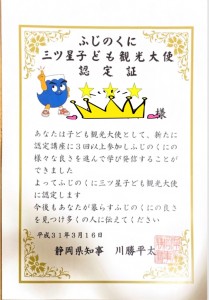 ふじのくに
三ツ星子ども観光大使
認定証
様
あなたは子ども観光大使として、新たに
認定講座に3回以上参加しふじのくにの
様々な良さを進んで学び発信することが
できました
よってふじのくに三ツ星子ども観光大使
に認定します
今後もあなたが暮らすふじのくにの良さ
を見つけ多くの人に伝えてください
平成31年3月16日
静岡県知事 川勝平太